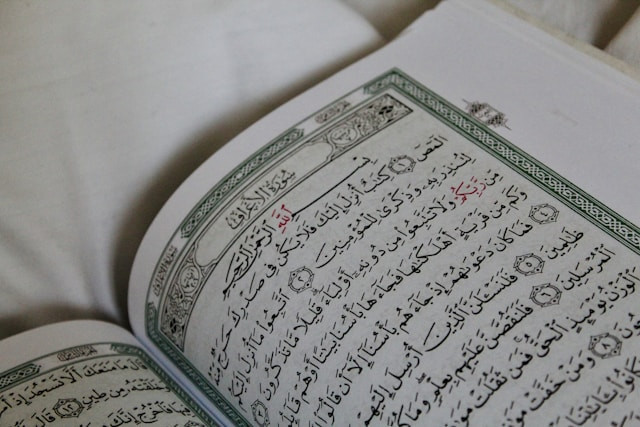 سُورَةُ الْأَعْرَافِ
بِسْمِ اللَّهِ الرَّحْمَٰنِ الرَّحِيمِ
الٓمٓصٓ ١ كِتَٰبٌ أُنزِلَ إِلَيْكَ فَلَا يَكُن فِي صَدْرِكَ حَرَجٌ
لِتُنذِرَ بِهِۦ وَذِكْرَىٰ لِلْمُؤْمِنِينَ ٢ ٱتَّبِعُوا۟ مَآ أُنزِلَ إِلَيْكُم
مِّن رَّبِّكُمْ وَلَا تَتَّبِعُوا۟ مِن دُونِهِۦٓ أَوْلِيَآءَ قَلِيلًا مَّا تَذَكَّرُونَ ٣
وَكَم مِّن قَرْيَةٍ أَهْلَكْنَٰهَا فَجَآءَهَا بَأْسُنَا بَيَٰتًا أَوْ هُمْ
٤ فَمَا كَانَ دَعْوَىٰهُمْ إِذْ جَآءَهُم بَأْسُنَآ إِلَّآ أَن قَالُوٓا۟
ظَٰلِمِينَ ٥ فَلَنَسْـَٔلَنَّ ٱلَّذِينَ أُرْسِلَ إِلَيْهِمْ
ٱلْمُرْسَلِينَ ٦ فَلَنَقُصَّنَّ عَلَيْهِم بِعِلْمٍ وَمَا
وَٱلْوَزْنُ يَوْمَئِذٍ ٱلْحَقُّ فَمَن ثَقُلَتْ
٨ وَمَنْ خَفَّتْ
مَا مَنَعَكَ أَلَّا تَسْجُدَ إِذْ
مِن طِينٍ ١٢ قَالَ
فَٱخْرُجْ إِنَّكَ مِنَ